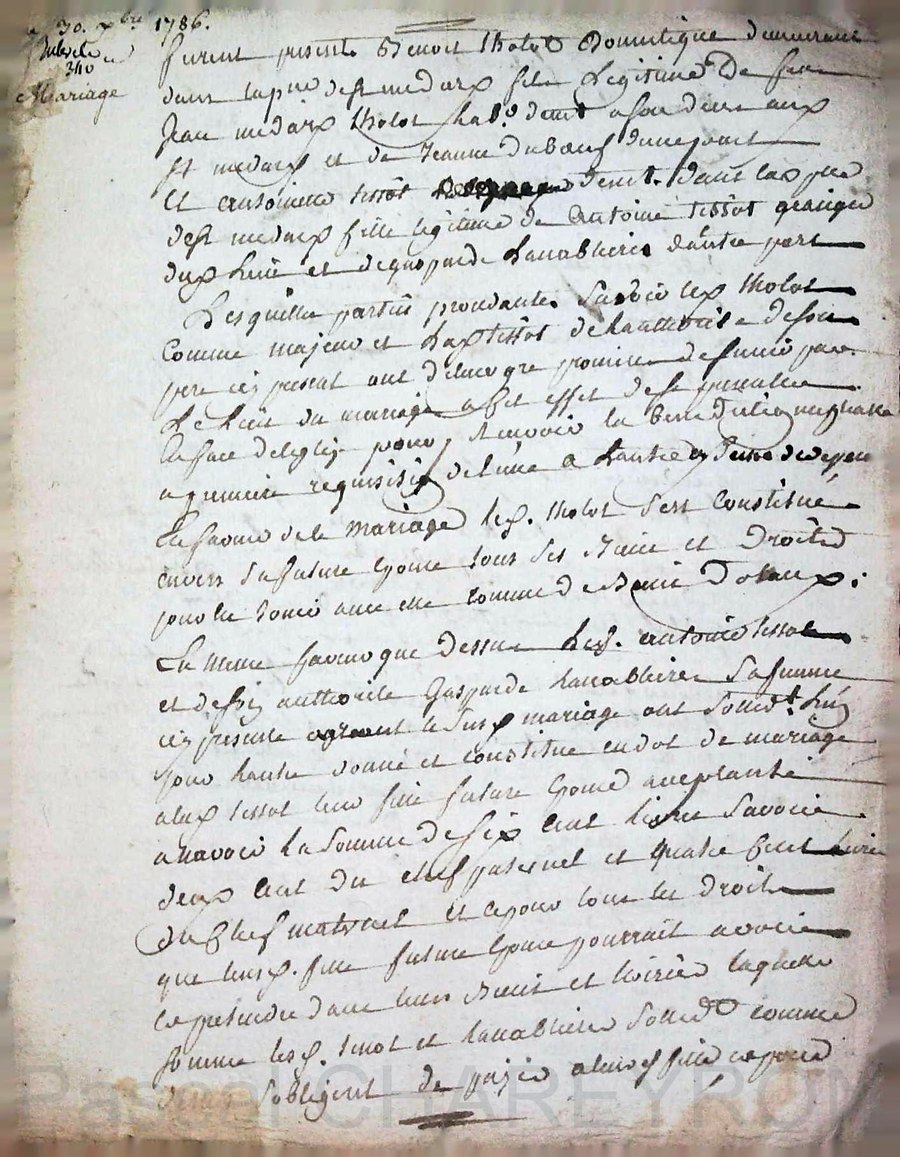 30. xbre 1786.
340
Mariage
furent presents Benoit tholot Domestique demeurant
dans la psse de st medard fils Legitime De feu
Jean medard tholot hab. a
st medard et de Jeanne Duboeuf d'une part
Et antoinette tissot demt. dans lad psse
de st medard fille legitime de antoine tissot granger
et de gasparde Lanablierie d'autre part
Lesquelles parties procedantes savoir led tholot
comme majeur et lad tissot de L'authorité de son
pere icy present ont promis de s'unir par
Le Lien du mariage a cet effet de se presenter
En face de Leglise pour Recevoir la Benediction nuptiale
a premiere requisition de Lune a Lautre
En faveur de ce mariage led. tholot s'est Constitué
envers sa future Epouse tous ses Biens et Droits
pour en comme de Biens Dotaux.
En meme faveur que dessus Led. antoine tissot
et de son authorité Gasparde Lanablierie sa femme
icy presente le susd mariage ont solidt. Lun
pour Lautre donné et constitué en dot de mariage
a lad tissot leur fille future Epouse acceptante
La somme de six cent Livres savoir
deux cent du chef paternel et quatre Cent Livres
Du Chef maternel Et ce pour tous les droits
que leurd. fille future Epouse pourrait avoir
et pretendre dans leurs Biens et hoiries laquelle
somme lesd. tissot et Lanablierie solidt comme
dessus s'obligent de payer a leurd fille
Pascal CHAREYRON